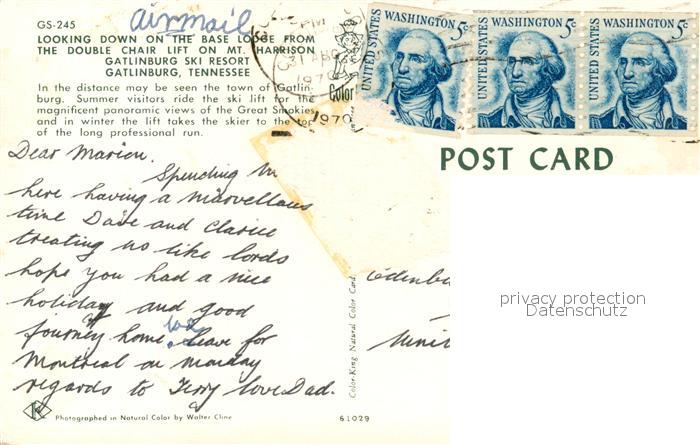 airmail
GS-245
LOOKING DOWN ON THE BASE LODGE FROM
THE DOUBLE CHAIR LIFT ON MT. HARRISON
GATLINBURG SKI RESORT
GATLINBURG, TENNESSEE
In the distance may be seen the town of Gatlin-
burg. Summer visitors ride the ski lift for the
magnificent panoramic views of the Great Smokies
and in winter the lift takes the skier to the top
of the long professional run.
Dear Marion.
Spending
here having a marvellous
time Dave and Clarice
treating us like lords
hope you had a nice
holiday and good
journey home. we leave for
Montreal on monday
regards to Terry love Dad.
Photographed in Natural Color by Walter Cline
61029
Color-King Natural Color Card
Color
PM
31 AUG
1970
1970
UNITED STATES WASHINGTON 5c
UNITED STATES WASHINGTON 5c
UNITED STATES WASHINGTON 5c
POST CARD
privacy protection
Datenschutz